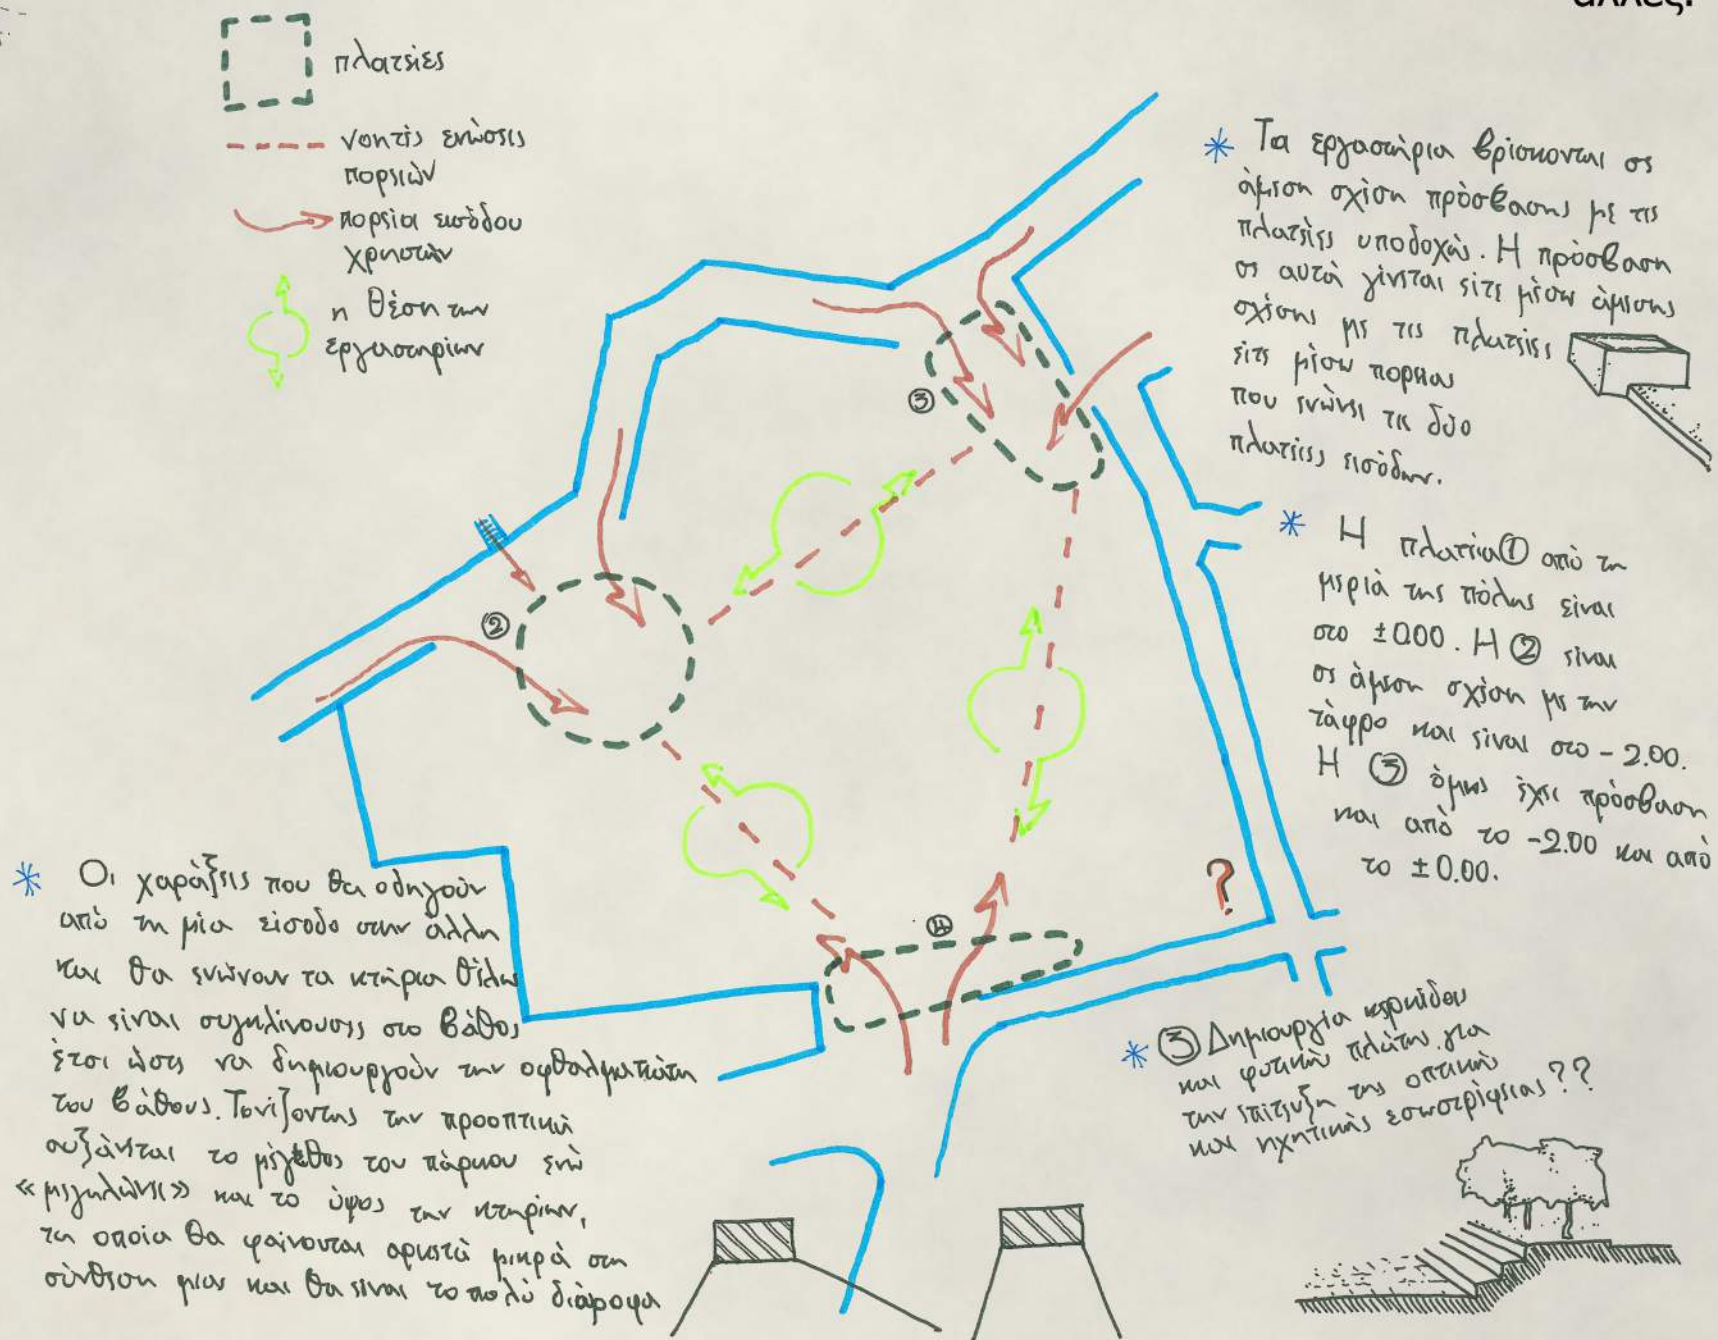 άλλες.
πλατείες
νοητές ενώσεις
πορειών
πορεία εισόδου
χρηστών
η θέση των
εργαστηρίων
* Τα εργαστήρια βρίσκονται σε
άμεση σχέση πρόσβασης με τις
πλατείες υποδοχής. Η πρόσβαση
σε αυτά γίνεται είτε μέσω άμεσης
σχέσης με τις πλατείες
είτε μέσω πορείας
που ενώνει τις δύο
πλατείες εισόδων.
③
②
* Η πλατεία ① από τη
μεριά της πόλης είναι
στο ±0.00. Η ② είναι
σε άμεση σχέση με την
τάφρο και είναι στο -2.00.
Η ③ όμως έχει πρόσβαση
και από το -2.00 και από
το ±0.00.
?
* Οι χαράξεις που θα οδηγούν
από τη μία είσοδο στην άλλη
και θα ενώνουν τα κτήρια θέλω
να είναι συγκλίνουσες στο βάθος
έτσι ώστε να δημιουργούν την οφθαλμαπάτη
του βάθους. Τονίζοντας την προοπτική
αυξάνεται το μέγεθος του πάρκου ενώ
«μεγαλώνει» και το ύψος των κτηρίων,
τα οποία θα φαίνονται αρκετά μικρά στη
σύνθεση μιας και θα είναι το πολύ διώροφα
* ③ Δημιουργία κερκίδων
και φυτικών πλάτη για
την επίτευξη της οπτικής
και ηχητικής εσωστρέφειας??